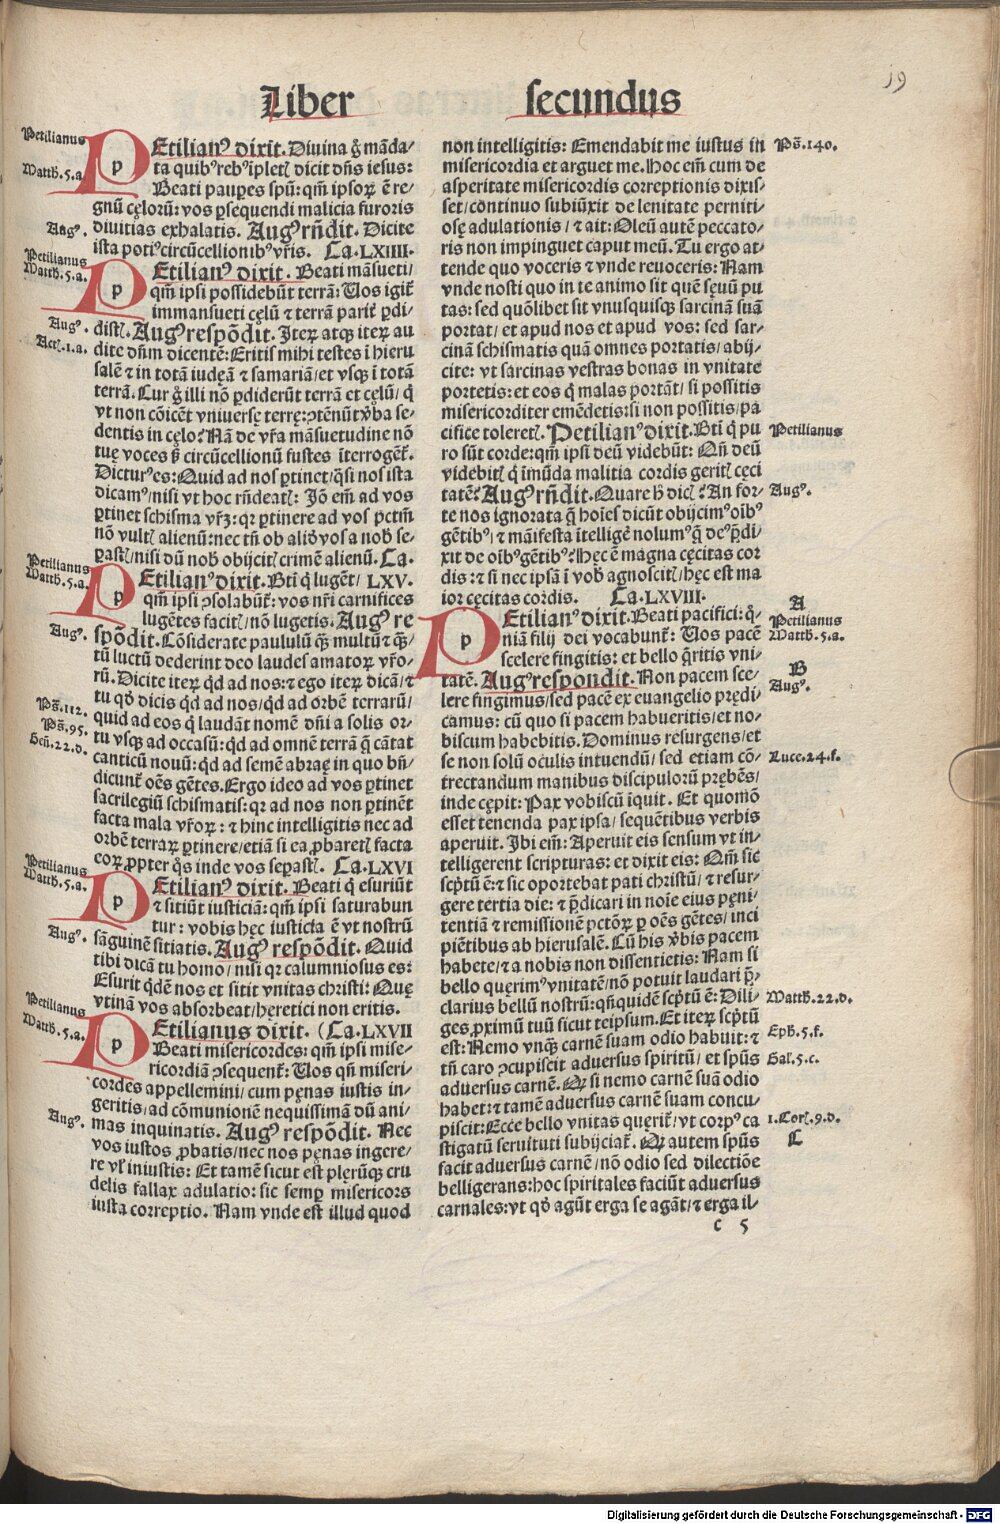 19
Liber secundus
Petilianus
Matth.5.a.
Augꝰ.
Petilianus
Matth.5.a.
Augꝰ.
Act.1.a.
Petilianus
Matth.5.a.
Augꝰ.
Pš.112.
Pš.95.
Geñ.22.d.
Petilianus
Matth.5.a.
Augꝰ.
Petilianus
Matth.5.a.
Augꝰ.
PEtilianꝰ dixit. Diuina g̃ mãda/
ta quibꝰ rebꝰ ĩpletʼ dicit dñs iesus:
Beati paupes spũ: qm̃ ipsoꝝ ẽ re/
gnũ cęlorũ: vos ꝑsequendi malicia furoris
diuitias exhalatis. Augꝰ rñdit. Dicite
ista potiꝰ circũcellionibꝰ vr̃is. Ca.LXIIII.
PEtilianꝰ dixit. Beati mãsueti/
qm̃ ipsi possidebũt terrã: Uos igit̃
immansueti cęlũ ⁊ terrã parit̃ ꝑdi/
distʼ. Augꝰ respõdit. Iteꝝ atqꝫ iteꝝ au
dite dñm dicentẽ: Eritis mihi testes ĩ hieru
salẽ ⁊ in totã iudęã ⁊ samariã/et vsqꝫ ĩ totã
terrã. Cur g̃ illi nõ ꝑdiderũt terrã et cęlũ/ q̃
vt non cõicẽt vniuersę terrę: ꝯtẽnũt v̾ba se/
dentis in cęlo? Nã de vr̃a mãsuetudine nõ
tuę voces sʒ circũcellionũ fustes ĩterrogẽt̃.
Dicturꝰ es: Quid ad nos ꝑtinet/ q̃si nos ista
dicamꝰ/ nisi vt hoc rñdeatʼ: Iõ em̃ ad vos
ꝑtinet schisma vr̃ʒ: qꝛ ꝑtinere ad vos pctm̃
nõ vultʼ alienũ: nec tñ ob aliõ vos a nob̾ se/
ꝑastʼ/ nisi dũ nob̾ obijcitʼ crimẽ alienũ. Ca.
PEtilianꝰ dixit. Bt̃i q̃ lugẽt/ LXV.
qm̃ ipsi ꝯsolabũt̃: vos nr̃i carnifices
lugẽtes facitʼ/ nõ lugetis. Augꝰ re
spõdit. Cõsiderate paululũ qʒ multũ ⁊ qʒ/
tũ luctũ dederint deo laudes amatoꝝ vr̃o/
rũ. Dicite iteꝝ qd ad nos: ⁊ ego iteꝝ dicã/ ⁊
tu qꝫ dicis qd ad nos/ qd ad orbẽ terrarũ/
quid ad eos q̃ laudãt nomẽ dñi a solis or/
tu vsqꝫ ad occasũ: qd ad omnẽ terrã q̃ cãtat
canticũ nouũ: qd ad semẽ abraę in quo bñ/
dicunt̃ oẽs gẽtes. Ergo ideo ad vos ꝑtinet
sacrilegiũ schismatis: qꝛ ad nos non ꝑtinẽt
facta mala vr̃oꝝ: ⁊ hinc intelligitis nec ad
orbẽ terraꝝ ꝑtinere/ etiã si ea ꝓbaretʼ facta
eoꝝ ꝓpter q̃s inde vos seꝑastʼ. Ca.LXVI
PEtilianꝰ dixit. Beati q̃ esuriũt
⁊ sitiũt iusticiã: qm̃ ipsi saturabun
tur: vobis hęc iusticia ẽ vt nostrũ
sãguinẽ sitiatis. Augꝰ respõdit. Quid
tibi dicã tu homo/ nisi qꝛ calumniosus es:
Esurit qdẽ nos et sitit vnitas christi: Quę
vtinã vos absorbeat/ hęretici non eritis.
PEtilianus dixit. (Ca.LXVII
Beati misericordes: qm̃ ipsi mise/
ricordiã ꝯsequent̃: Uos qñ miseri/
cordes appellemini/ cum pęnas iustis in/
geritis/ ad cõmunionẽ nequissimã dũ ani/
mas inquinatis. Augꝰ respõdit. Nec
vos iustos ꝓbatis/ nec nos pęnas ingere/
re vʼl iniustis: Et tamẽ sicut est plerũqꝫ cru
delis fallax adulatio: sic semꝑ misericors
iusta correptio. Nam vnde est illud quod
non intelligitis: Emendabit me iustus in
misericordia et arguet me. Hoc em̃ cum de
asperitate misericordis correptionis dixis/
set/ continuo subiũxit de lenitate perniti/
osę adulationis/ ⁊ ait: Oleũ autẽ peccato/
ris non impinguet caput meũ. Tu ergo at/
tende quo voceris ⁊ vnde reuoceris: Nam
vnde nosti quo in te animo sit quẽ sęuũ pu
tas: sed quõlibet sit vnusquisqꝫ sarcinã suã
portat/ et apud nos et apud vos: sed sar/
cinã schismatis quã omnes portatis/ abij/
cite: vt sarcinas vestras bonas in vnitate
portetis: et eos q̃ malas portãt/ si possitis
misericorditer emẽdetis: si non possitis/ pa
cifice toleretʼ. Petilianꝰ dixit. Bt̃i q̃ pu
ro sũt corde: qm̃ ipsi deũ videbũt: Qñ deũ
videbitʼ q̃ ĩmũda malitia cordis geritʼ cęci
tatẽ? Augꝰ rñdit. Quare h̾ dicʼ? An for/
te nos ignorata q̃ hoĩes dicũt obijcimꝰ oĩbꝰ
gẽtibꝰ/ ⁊ mãifesta ĩtelligẽ nolumꝰ q̃ deꝰ p̃di/
xit de oĩbꝰ gẽtibꝰ? Hęc ẽ magna cęcitas cor
dis: ⁊ si nec ipsã ĩ vob̾ agnoscitʼ/ hęc est ma
ior cęcitas cordis. Ca.LXVIII.
PEtilianꝰ dixit. Beati pacifici: q̃/
niã filij dei vocabunt̃: Uos pacẽ
scelere fingitis: et bello q̃ritis vni/
tatẽ. Augꝰ respondit. Non pacem sce/
lere fingimus/ sed pacẽ ex euangelio prędi/
camus: cũ quo si pacem habueritis/ et no/
biscum habebitis. Dominus resurgens/ et
se non solũ oculis intuendũ/ sed etiam cõ/
trectandum manibus discipulorũ prębẽs/
inde cępit: Pax vobiscũ iquit. Et quomõ
esset tenenda pax ipsa/ sequẽtibus verbis
aperuit. Ibi em̃: Aperuit eis sensum vt in/
telligerent scripturas: et dixit eis: Qm̃ sic
scp̃tũ ẽ: ⁊ sic oportebat pati christũ/ ⁊ resur/
gere tertia die: ⁊ p̃dicari in noĩe eius pęni/
tentiã ⁊ remissionẽ pctõꝝ ꝑ oẽs gẽtes/ inci
piẽtibus ab hierusalẽ. Cũ his v̾bis pacem
habete/ ⁊ a nobis non dissentietis: Nam si
bello quęrimꝰ vnitatẽ/ nõ potuit laudari p̃/
clarius bellũ nostrũ: qñquidẽ scp̃tũ ẽ: Dili/
ges ꝓximũ tuũ sicut teipsum. Et iteꝝ scp̃tũ
est: Nemo vnqʒ carnẽ suam odio habuit: ⁊
tñ caro ꝯcupiscit aduersus spiritũ/ et spũs
aduersus carnẽ. Qꝛ si nemo carnẽ suã odio
habet: ⁊ tamẽ aduersus carnẽ suam concu/
piscit: Ecce bello vnitas querit̃/ vt corpꝰ ca
stigatũ seruituti subijciat̃. Qꝛ autem spũs
facit aduersus carnẽ/ nõ odio sed dilectiõe
belligerans: hoc spiritales faciũt aduersus
carnales: vt qꝫ agũt erga se agãt/ ⁊ erga il/
c 5
Pš.140.
Petilianus
Augꝰ.
A
Petilianus
Matth.5.a.
B
Augꝰ.
Luce.24.f.
Matth.22.d.
Eph.5.f.
Gal.5.c.
1.Corʼ.9.d.
C
Digitalisierung gefördert durch die Deutsche Forschungsgemeinschaft - DFG